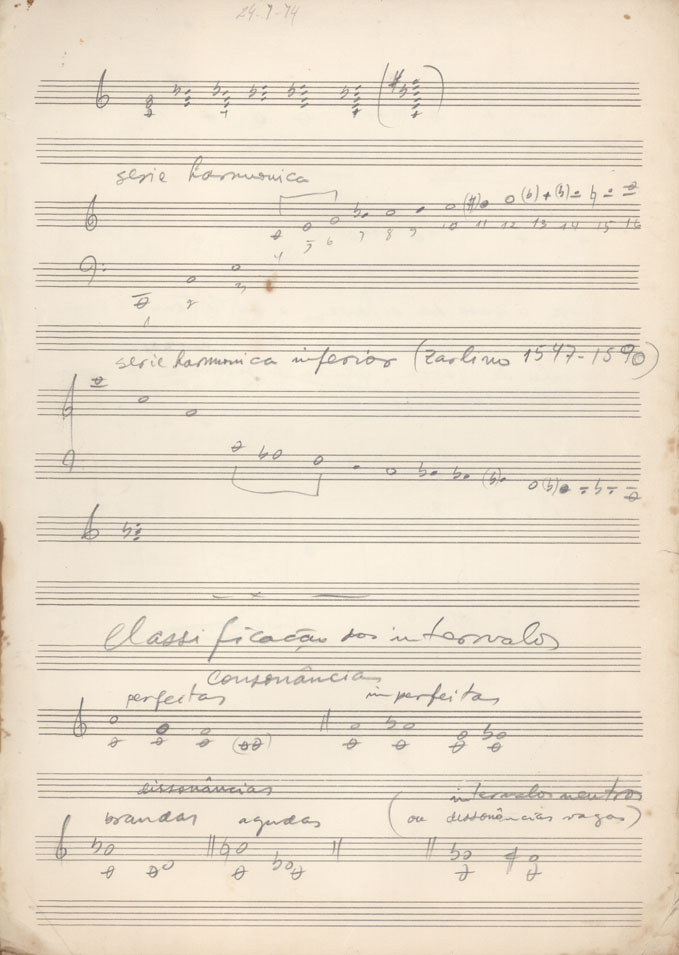 24-7-74
serie harmonica
(#) (b) + (b)
4 5 6 7 8 9 10 11 12 13 14 15 16
1 2 3
serie harmonica inferior (Zarlino 1547-1590)
Classificação dos intervalos
Consonâncias
perfeitas imperfeitas
dissonâncias intervalos neutros
brandas agudas (ou dissonâncias vagas)